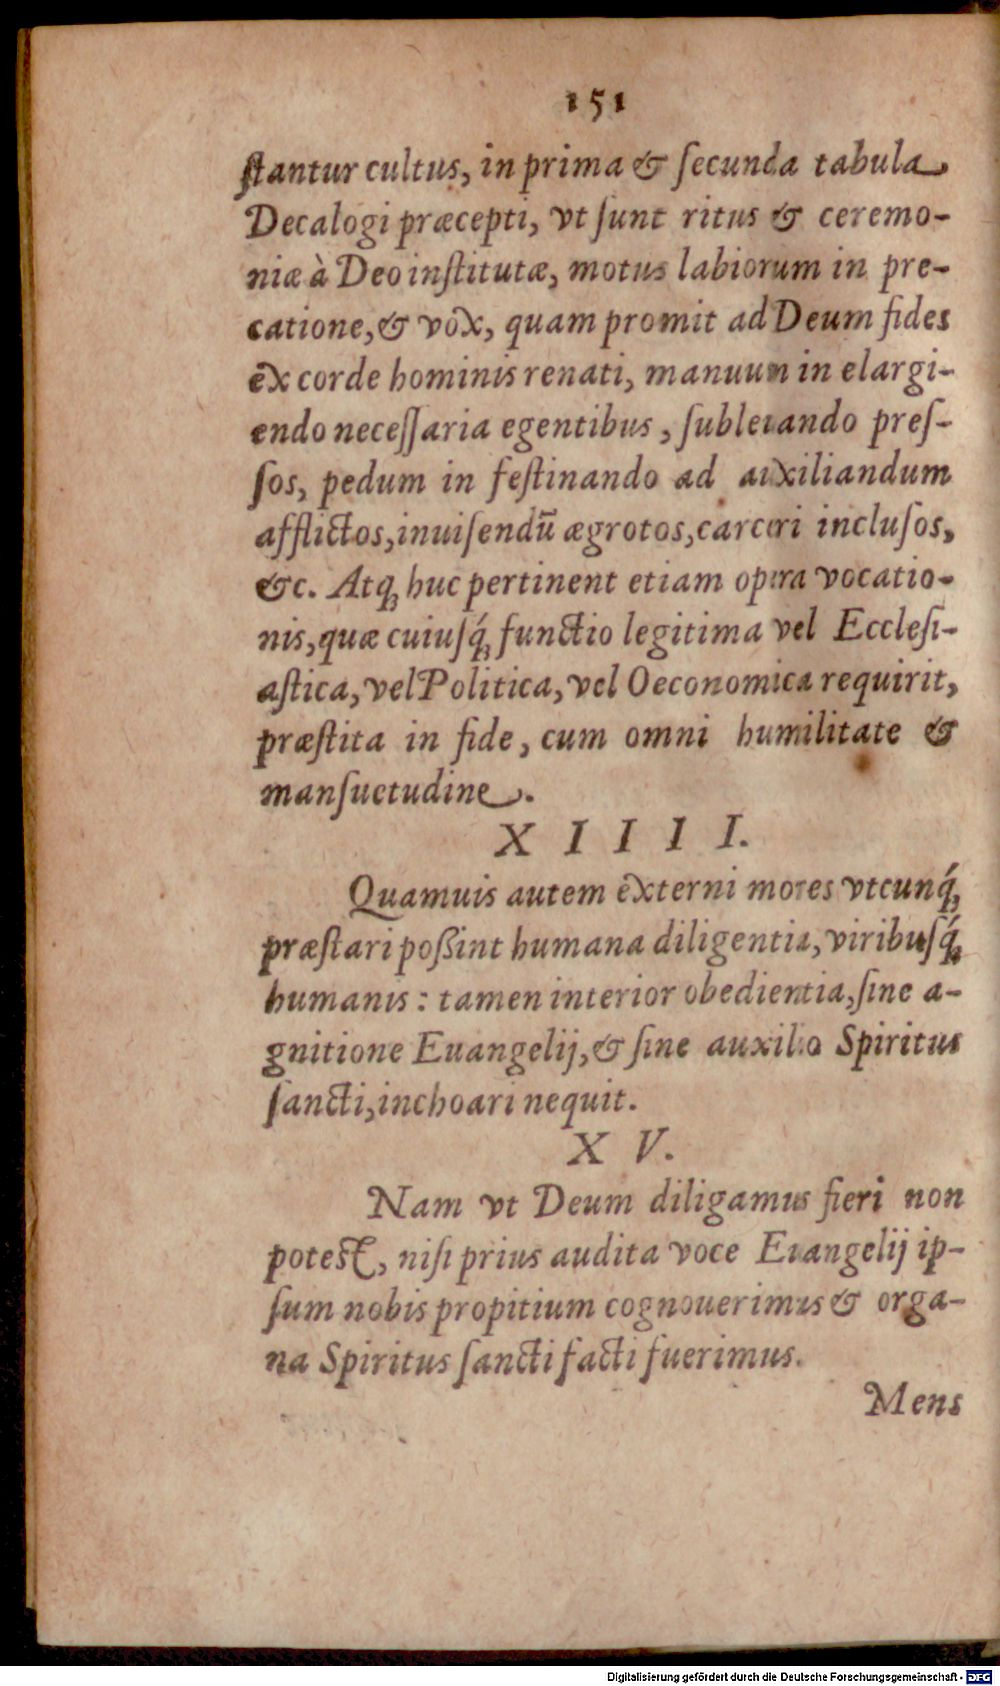 151
ſtantur cultus, in prima & ſecunda tabula
Decalogi præcepti, vt ſunt ritus & ceremo-
niæ à Deo inſtitutæ, motus labiorum in pre-
catione, & vox, quam promit ad Deum fides
ex corde hominis renati, manuum in elargi-
endo neceſſaria egentibus, ſubleuando preſ-
ſos, pedum in feſtinando ad auxiliandum
afflictos, inuiſendū ægrotos, carceri incluſos,
&c. Atq; huc pertinent etiam opera vocatio-
nis, quæ cuiuſq́; functio legitima vel Eccleſi-
aſtica, vel Politica, vel Oeconomica requirit,
præſtita in fide, cum omni humilitate &
manſuetudine.
XIIII.
Quamuis autem externi mores vtcunq́;
præſtari poßint humana diligentia, viribuſq́;
humanis: tamen interior obedientia, ſine a-
gnitione Euangelij, & ſine auxilio Spiritus
ſancti, inchoari nequit.
XV.
Nam vt Deum diligamus fieri non
poteſt, niſi prius audita voce Euangelij ip-
ſum nobis propitium cognouerimus & orga-
na Spiritus ſancti facti fuerimus.
Mens
Digitalisierung gefördert durch die Deutsche Forschungsgemeinschaft - DFG